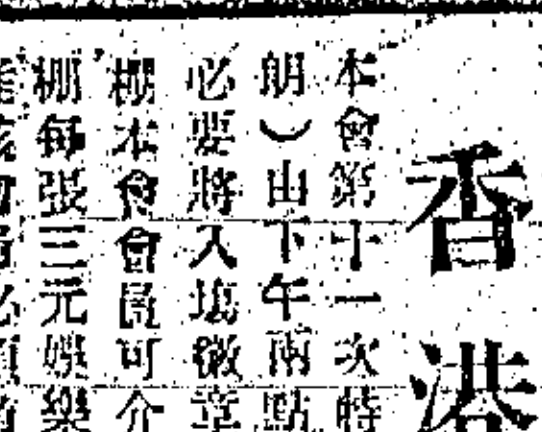 香港
本會第十一次特
朗）由下午兩點
必要將入塲徽章
棚本會會員可介
棚每張三元娛樂